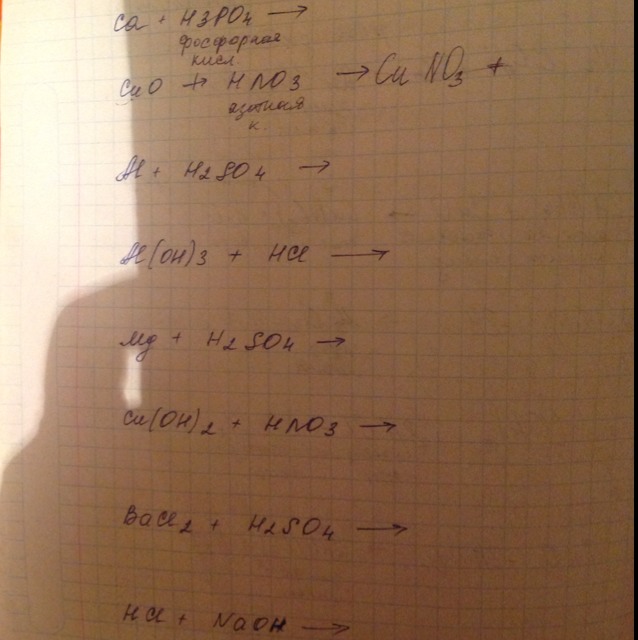 Ca + H3PO4 →
фосфорная
кисл.
CuO + HNO3 → Cu NO3 +
азотная
к.
Al + H2SO4 →
Al(OH)3 + HCl →
Mg + H2SO4 →
Cu(OH)2 + HNO3 →
BaCl2 + H2SO4 →
HCl + NaOH →